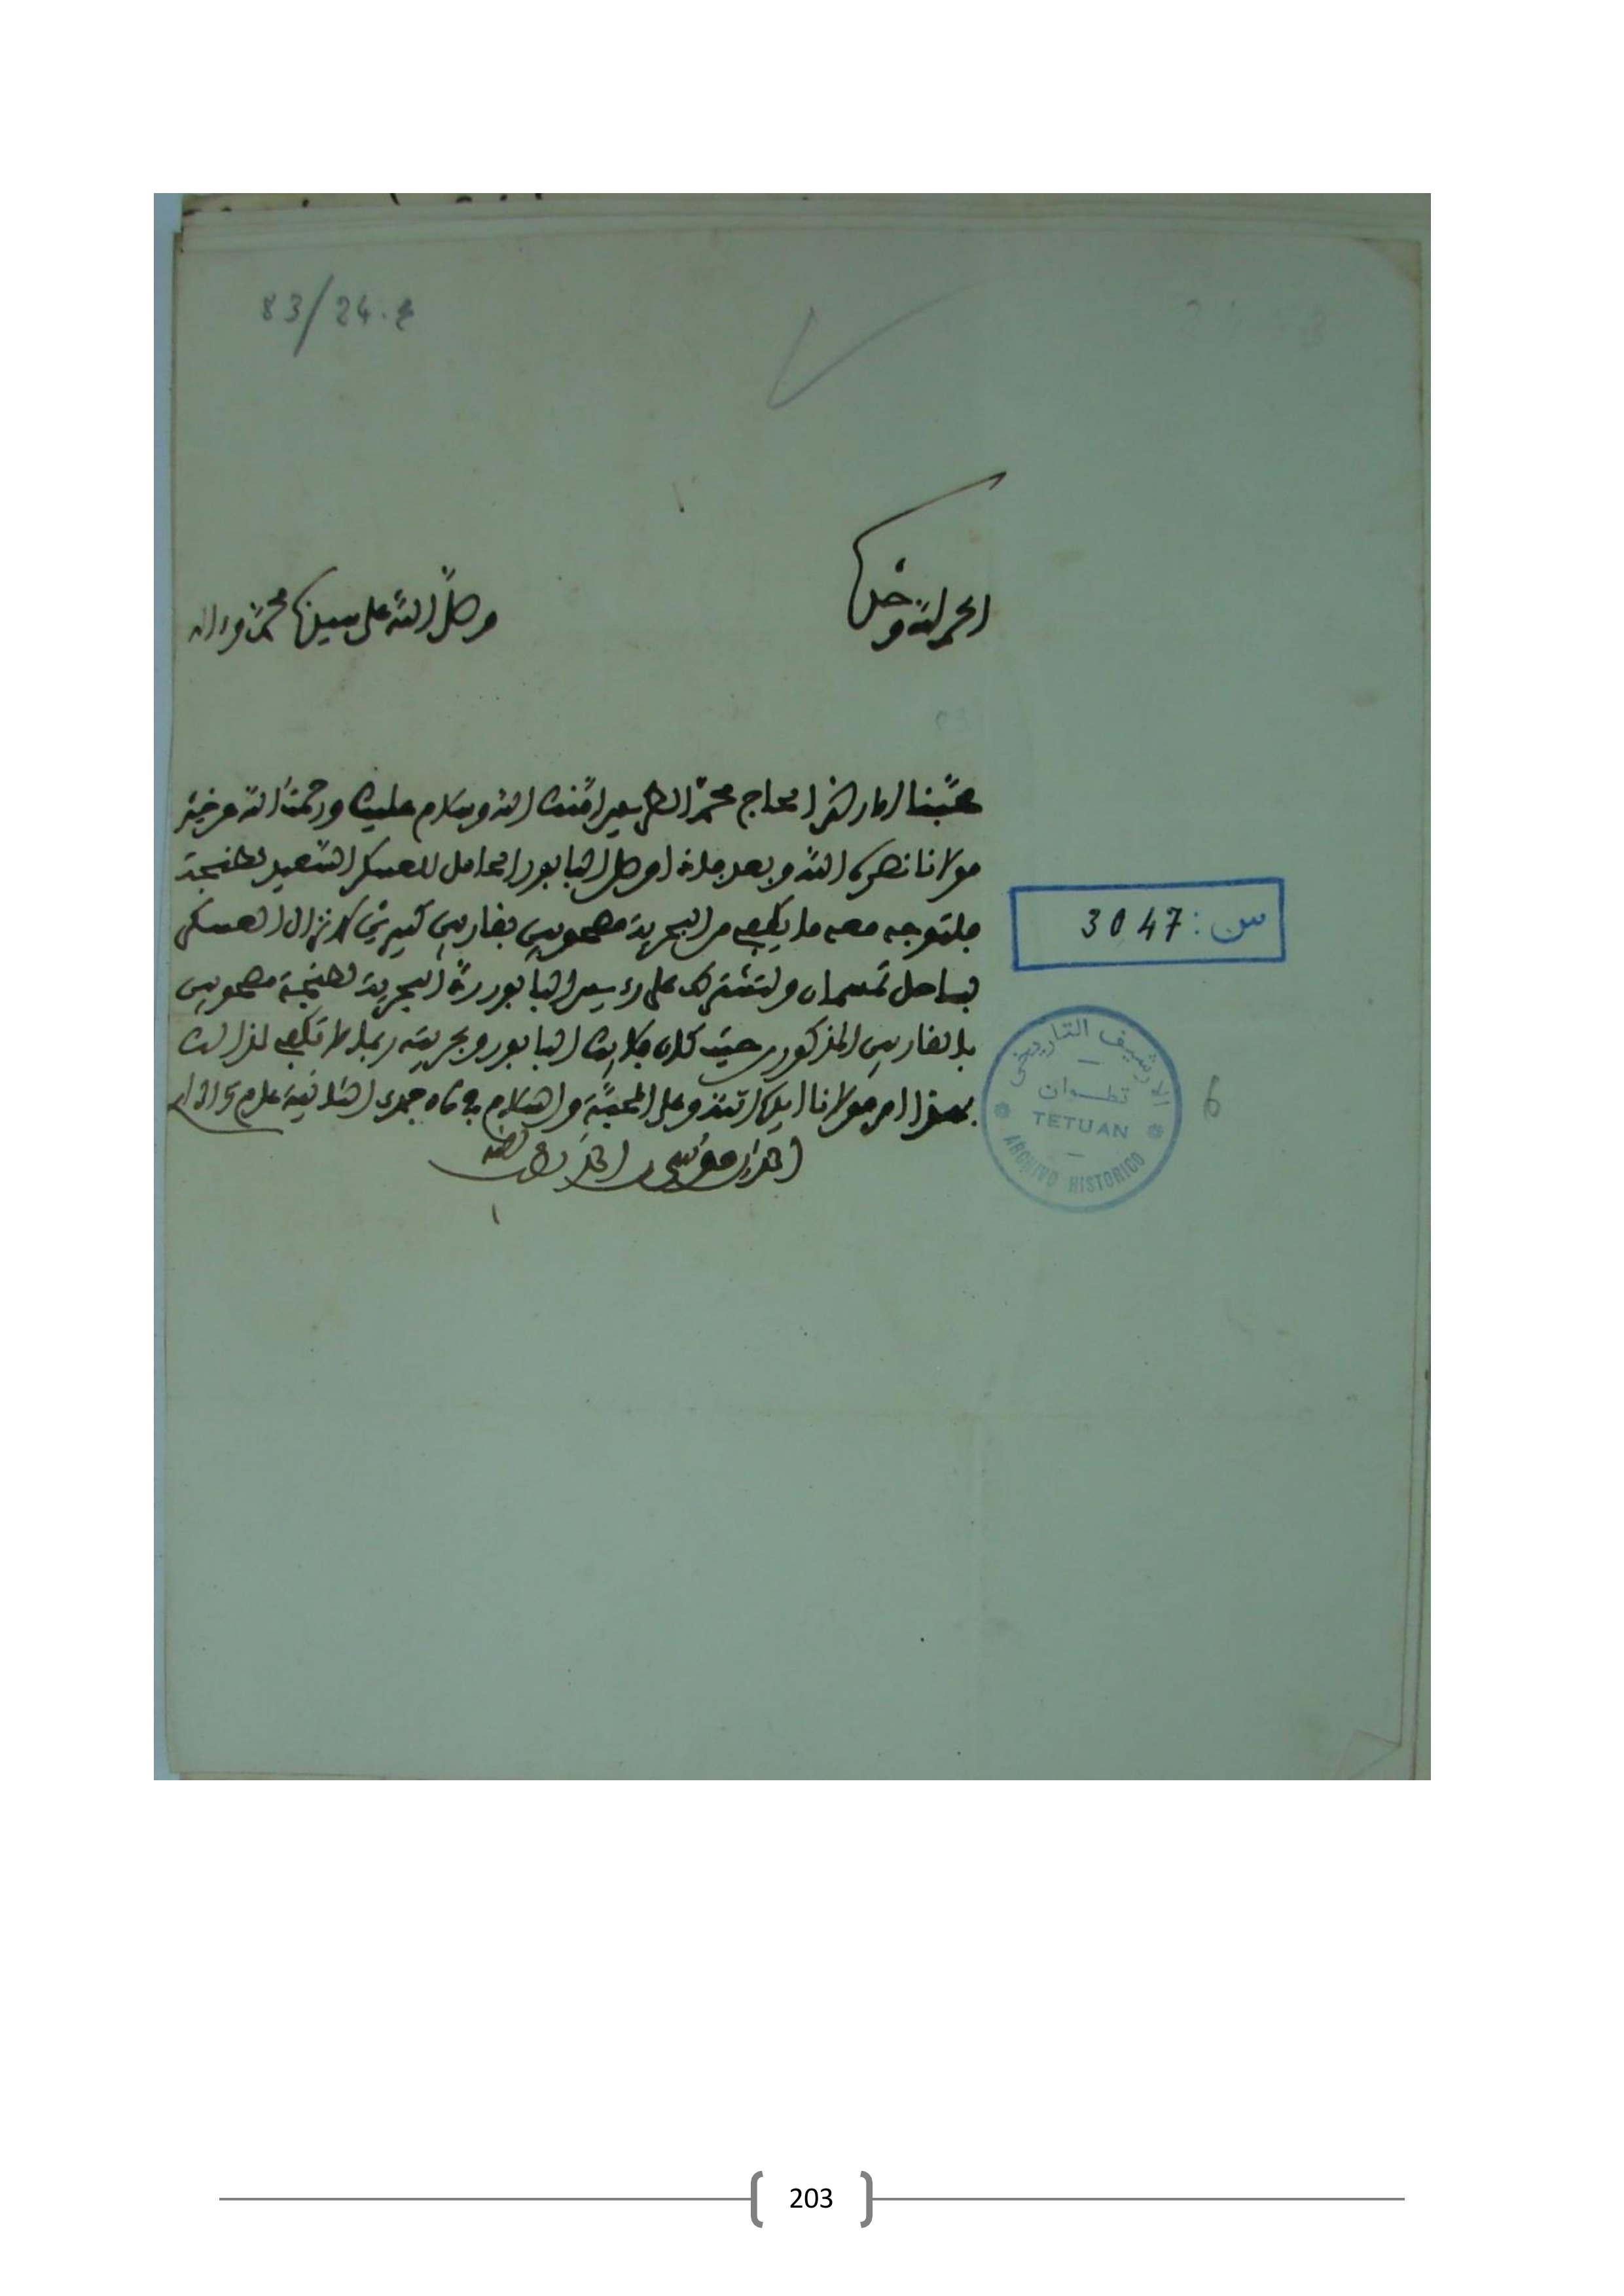 83/24.
الحمد لله وحده
وصلى الله على سيدنا محمد وءاله
محبنا الحاج محمد امنك الله وسلام عليك ورحمة الله عن خير
مولانا نصره الله وبعد فاذا وصل البابور الحامل للعسكر السعيد لطنجة
فلتوجه معه ما يكفي من البحرية مصحوبين بقاربين كبيرين لانزال العسكر
بساحل تمسمان ولتشترط على رءيس البابور رد البحرية لطنجة مصحوبين
بالقاربين المذكورين حيث كان فلايك البابور وبحريته ربما لا تكفي لذلك
بهذا امر مولانا ايده الله وعلى المحبة والسلام في جمدى الثانية عام
موسى بن احمد لطف الله به
س: 3047
الارشيف التاريخي
تطوان
TETUAN
ARCHIVO HISTORICO
6
203